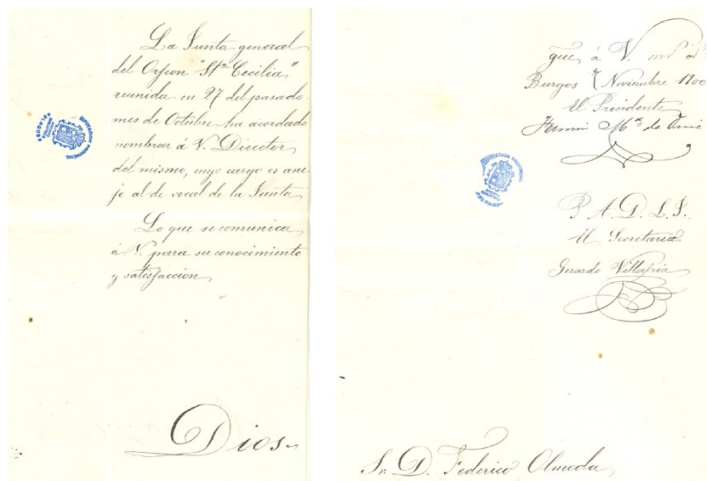 La Junta general
del Orfeon "Sta Cecilia"
reunida en 27 del pasado
mes de Octubre ha acordado
nombrar á V. Director
del mismo, cuyo cargo es ane-
jo al de vocal de la Junta
Lo que se comunica
á V. para su conocimiento
y satisfaccion
Dios
gue. á V. m. a.
Burgos 7 Noviembre 1900
El Presidente
Fermin Ma de
P. A. D. L. J.
El Secretario
Gerardo Villafria
Sr. D. Federico Olmeda